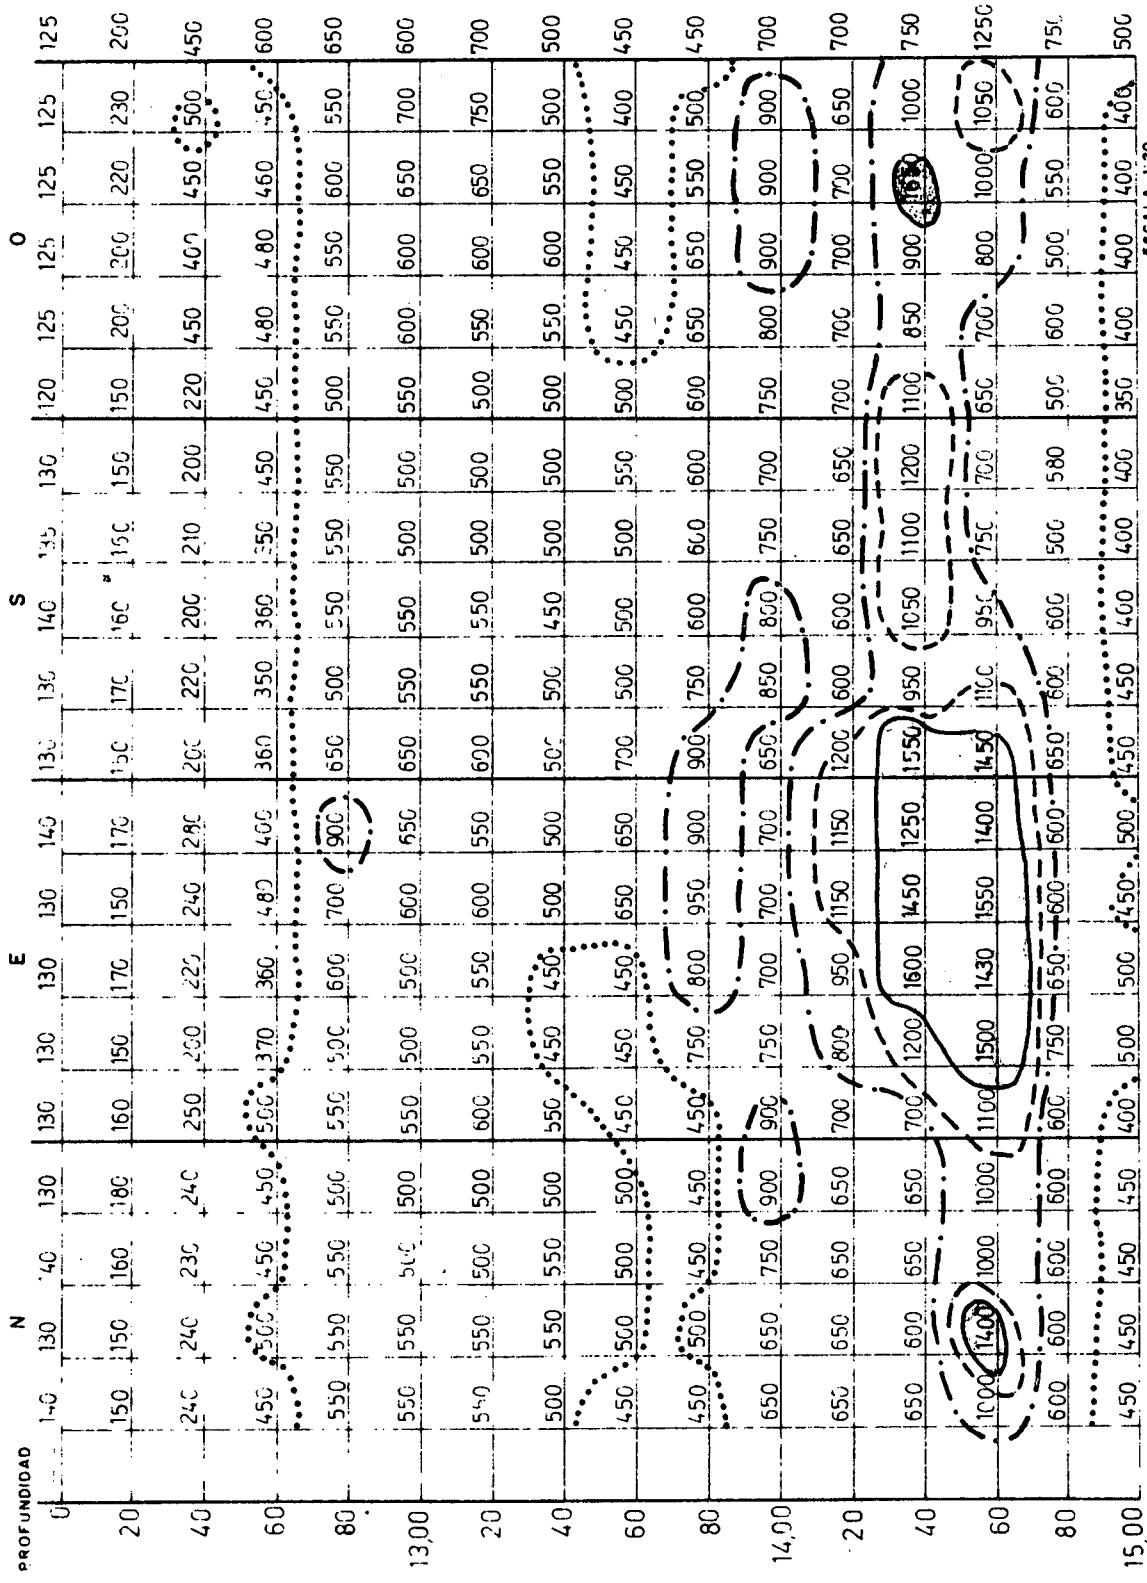 PROFUNDIDAD N E S O
0 140 130 140 130 130 130 130 130 140 130 130 140 135 130 120 125 125 125 125 125
20 150 150 160 180 160 150 170 150 170 160 170 160 160 150 150 200 200 220 230 200
40 240 240 230 240 250 200 220 240 280 200 220 200 210 200 220 450 400 450 500 450
60 450 500 450 450 500 370 360 480 400 360 350 360 350 450 450 480 480 460 450 600
80 550 550 550 500 550 500 600 700 900 650 500 550 550 550 500 550 550 600 550 650
13,00 550 550 500 500 550 500 500 600 650 650 550 550 500 500 550 600 600 650 700 600
20 540 550 500 500 600 550 550 600 550 600 550 550 500 500 500 550 600 650 750 700
40 500 550 550 500 550 450 450 500 500 500 500 450 500 500 500 550 600 550 500 500
60 450 500 500 500 450 450 450 650 650 700 500 500 500 550 500 450 450 450 400 450
80 450 500 450 450 450 750 800 950 900 900 750 600 600 600 600 650 650 550 500 450
14,00 650 650 750 900 900 750 700 700 700 650 850 800 750 700 750 800 900 900 900 700
20 650 650 650 650 700 800 950 1150 1150 1200 600 600 650 650 700 700 700 700 650 700
40 650 600 650 650 700 1200 1600 1450 1250 1550 950 1050 1100 1200 1100 850 900 1650 1000 750
60 1000 1400 1000 1000 1100 1500 1430 1550 1400 1450 1100 950 750 700 650 700 800 1000 1050 1250
80 600 600 600 600 600 750 650 600 600 650 600 600 500 580 500 600 500 550 600 750
15,00 450 450 450 450 400 500 500 450 500 450 450 400 400 400 350 400 400 400 400 500